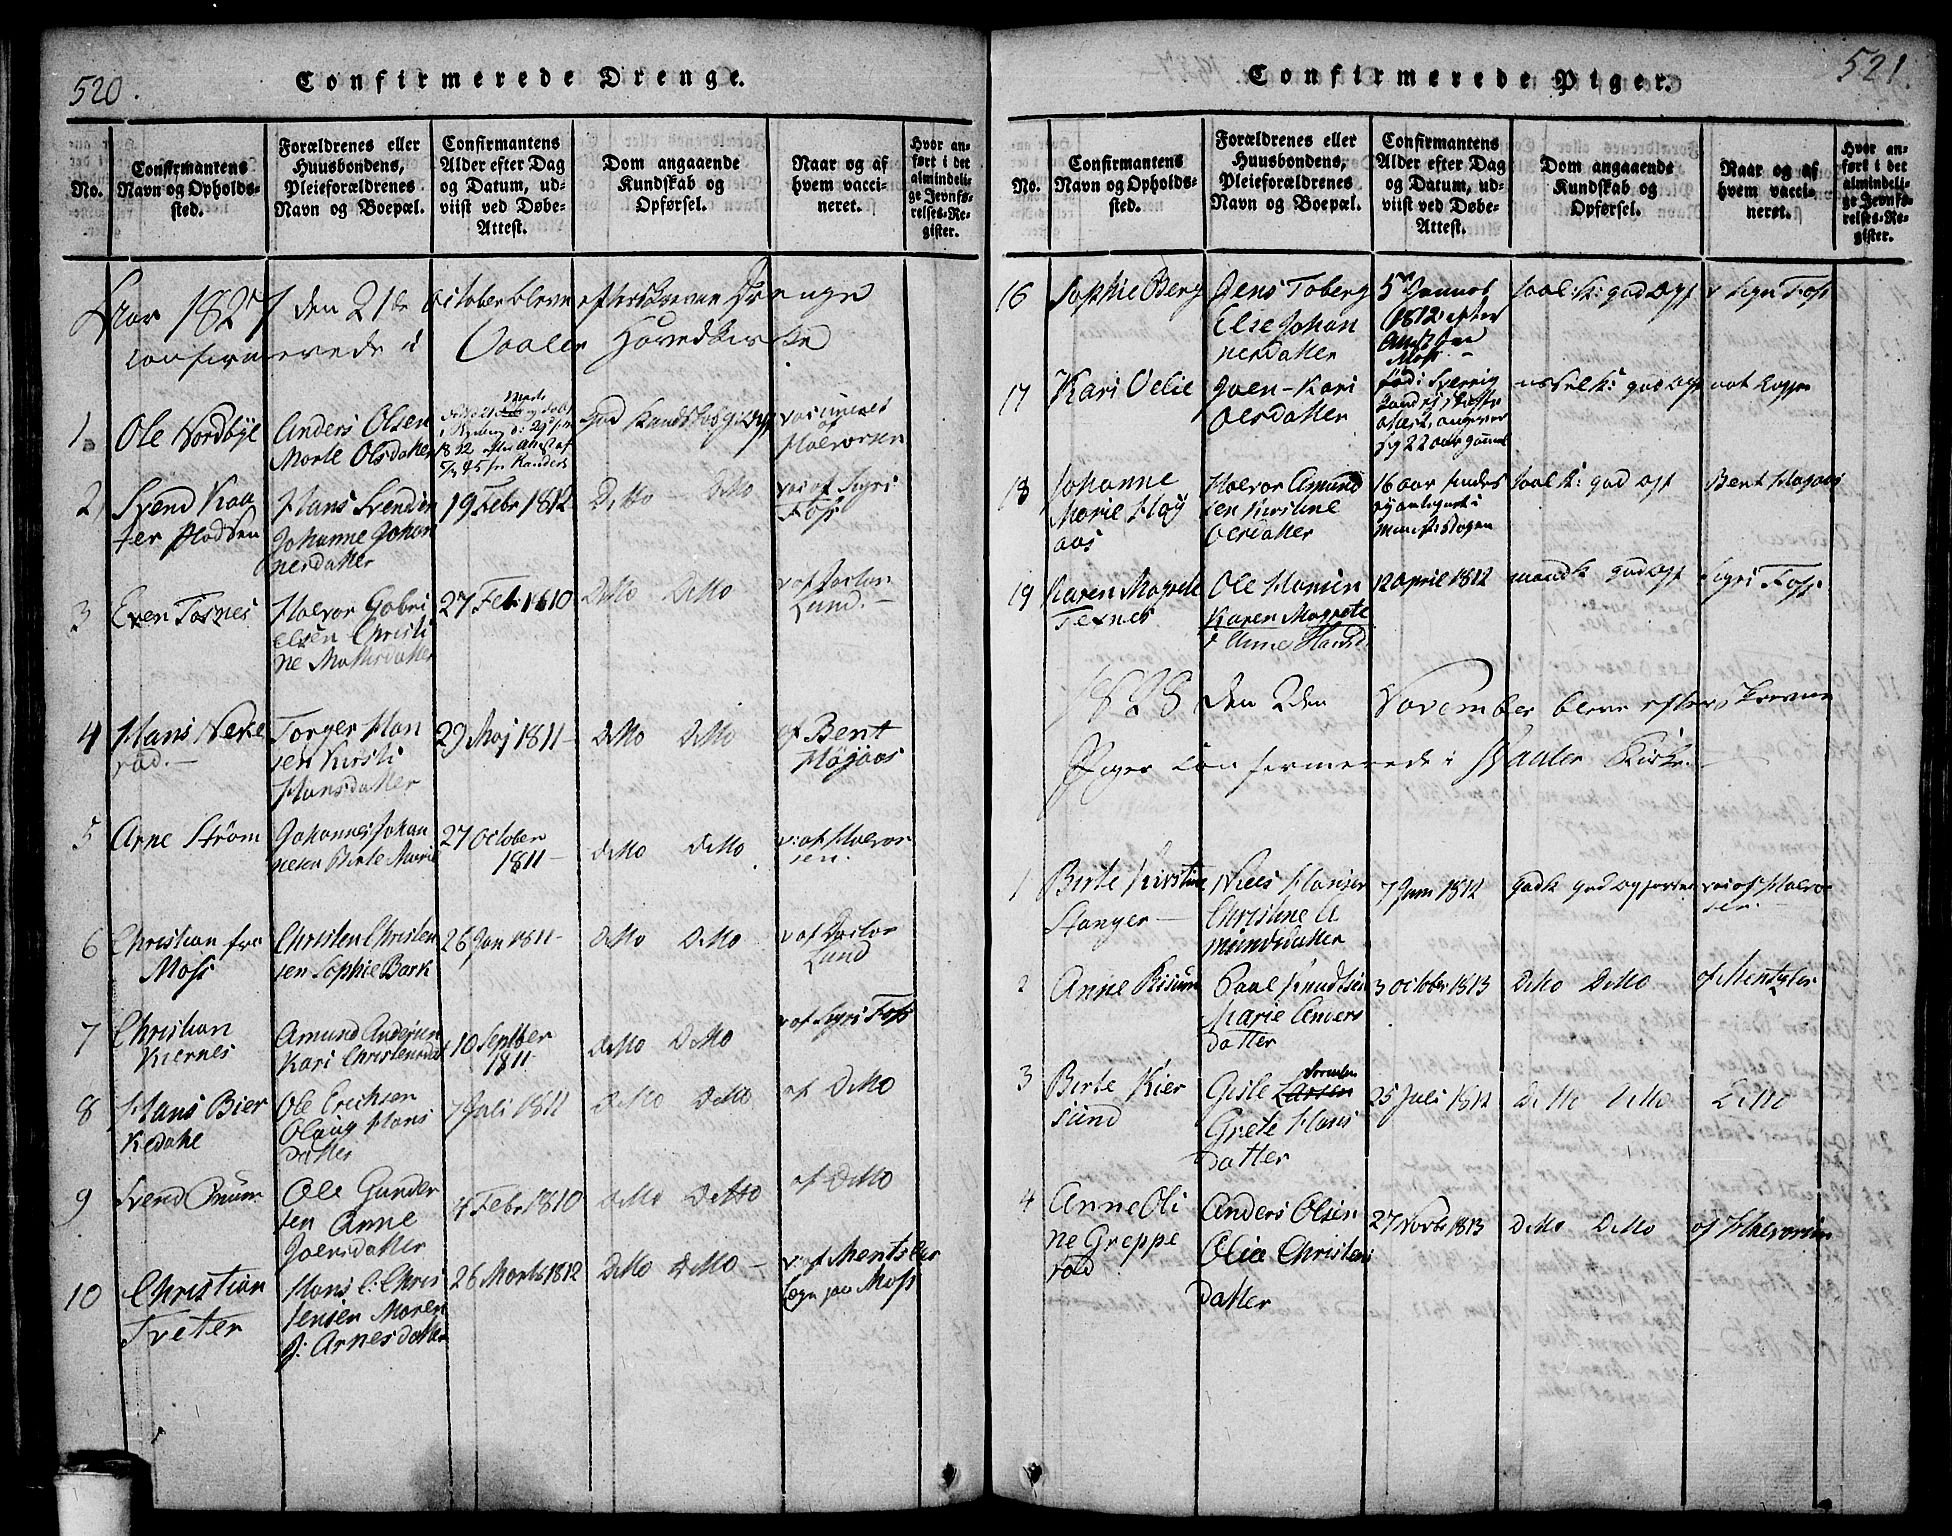 520.
Confirmerede Drenge.
No.
Confirmantens
Navn og Opholds-
sted.
Forældrenes eller
Huusbondens,
Pleieforældrenes
Navn og Boepæl.
Confirmantens
Alder efter Dag
og Datum, ud-
viist ved Døbe-
Attest.
Dom angaaende
Kundskab og
Opførsel.
Naar og af
hvem vacci-
neret.
Hvor an-
ført i det
almindeli-
ge Jevnfø-
relses-Re-
gister.
Aar 1827 den 21de October bleve efterskrevne Drenge
confirmerede i Vaaler Hovedkirke
1
Ole Nordbye
Anders Olsen
Marte Olsdatter
1812
God Kundskab
Halvorsen
2
Svend Kaa
ter Pladsen
Hans Svendsen
Johanne Johan
nesdatter
19 Febr 1812
Ditto Ditto
vac af Sigri
Foss
3
Even Tosnes
Halvor Gabri
elsen Christi
ne Mathisdatter
27 Feb: 1810
Ditto Ditto
v af Doctor
Lund.
4
Hans Neke
rød.
Torger Han
sen Kirsti
Hansdatter
29 Maj 1811
Ditto Ditto
af Bent
Høyaas
5
Arne Strøm
Johannes Johan
nesen Birte Marie
27 October
1811
Ditto Ditto
v: af Halvor
sen.
6
Christian fra
Moss
Christen Christen
sen Sophie Bark
26 Jan 1811
Ditto Ditto
v af Doctor
Lund
7
Christian
Kiernes
Amund Andersen
Kari Christensdat
10 Septber
1811
Ditto Ditto
v af Sigri Foss
8
Hans Bier
kedahl
Ole Ericksen
Olaug Hans
Datter
7 Juli 1811
Ditto Ditto
af Ditto
9
Svend
Ole Gunder
sen Anne
Joersdatter
4 Febr 1810
Ditto Ditto
af Ditto
10
Christian
Tveter
Hans C: Chris
tensen Maren
J: Arnesdatter
26 Marts 1812
Ditto Ditto
v af Ments
Moss
521.
Confirmerede Piger.
No.
Confirmantens
Navn og Opholds-
sted.
Forældrenes eller
Huusbondens,
Pleieforældrenes
Navn og Boepæl.
Confirmantens
Alder efter Dag
og Datum, ud-
viist ved Døbe-
Attest.
Dom angaaende
Kundskab og
Opførsel.
Naar og af
hvem vacci-
neret.
Hvor an-
ført i det
almindeli-
ge Jevnfø-
relses-Re-
gister.
16
Sophie Berg
Jens Toberg
Else Johan
nesdatter
5 Januar
1812 efter
Attest fra
Moss
god Opf
v Sigri Foss
17
Kari Velie
Joen - Kari
Olsdatter
Fød i Sverrig
22 aar gammel
god Opf
18
Johanne
Marie Høy
aas
Halvor Amund
sen Kirstine
Olsdatter
16 aar
god Opf
Bent Høyaas
19
Karen Magrete
Texnes
Ole Hansen
Karen Magrete
Anne Hansd
12 April 1812
god Opf
Sigri Foss
1828 den 2den November bleve efterskrevne
Piger confirmerede i Vaaler Kirke.
1
Birte Kirstine
Stanger
Niels Hansen
Christine A
mundsdatter
7 Juni 1812
God K god Opførsel
vac af Halvor
sen.
2
Anne Risum
Paal Knudtsen
Marie Anders
datter
3 October 1813
Ditto Ditto
af Ments
3
Birte Kier
sund
Gisle Larsen
Grete Hans
Datter
25 Juli 1812
Ditto Ditto
Ditto
4
Anne Oli
ne Greppe
rød
Anders Olsen
Olia Christens
datter
27 Novbr 1813
Ditto Ditto
af Halvorsen